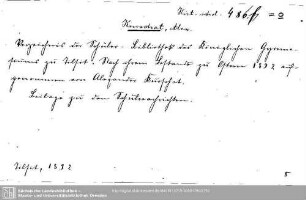 Hist. ried. 486 f =9
Kurschat, Alex.
Verzeichnis der Schüler-Bibliothek des Königlichen Gymna-
siums zu Tilsit. Nach ihrem Bestande zu Ostern 1892 auf-
genommen von Alexander Kurschat.
Beilage zu den Schulnachrichten.
Tilsit, 1892
8
Sächsische Landesbibliothek -
Staats- und Universitätsbibliothek Dresden